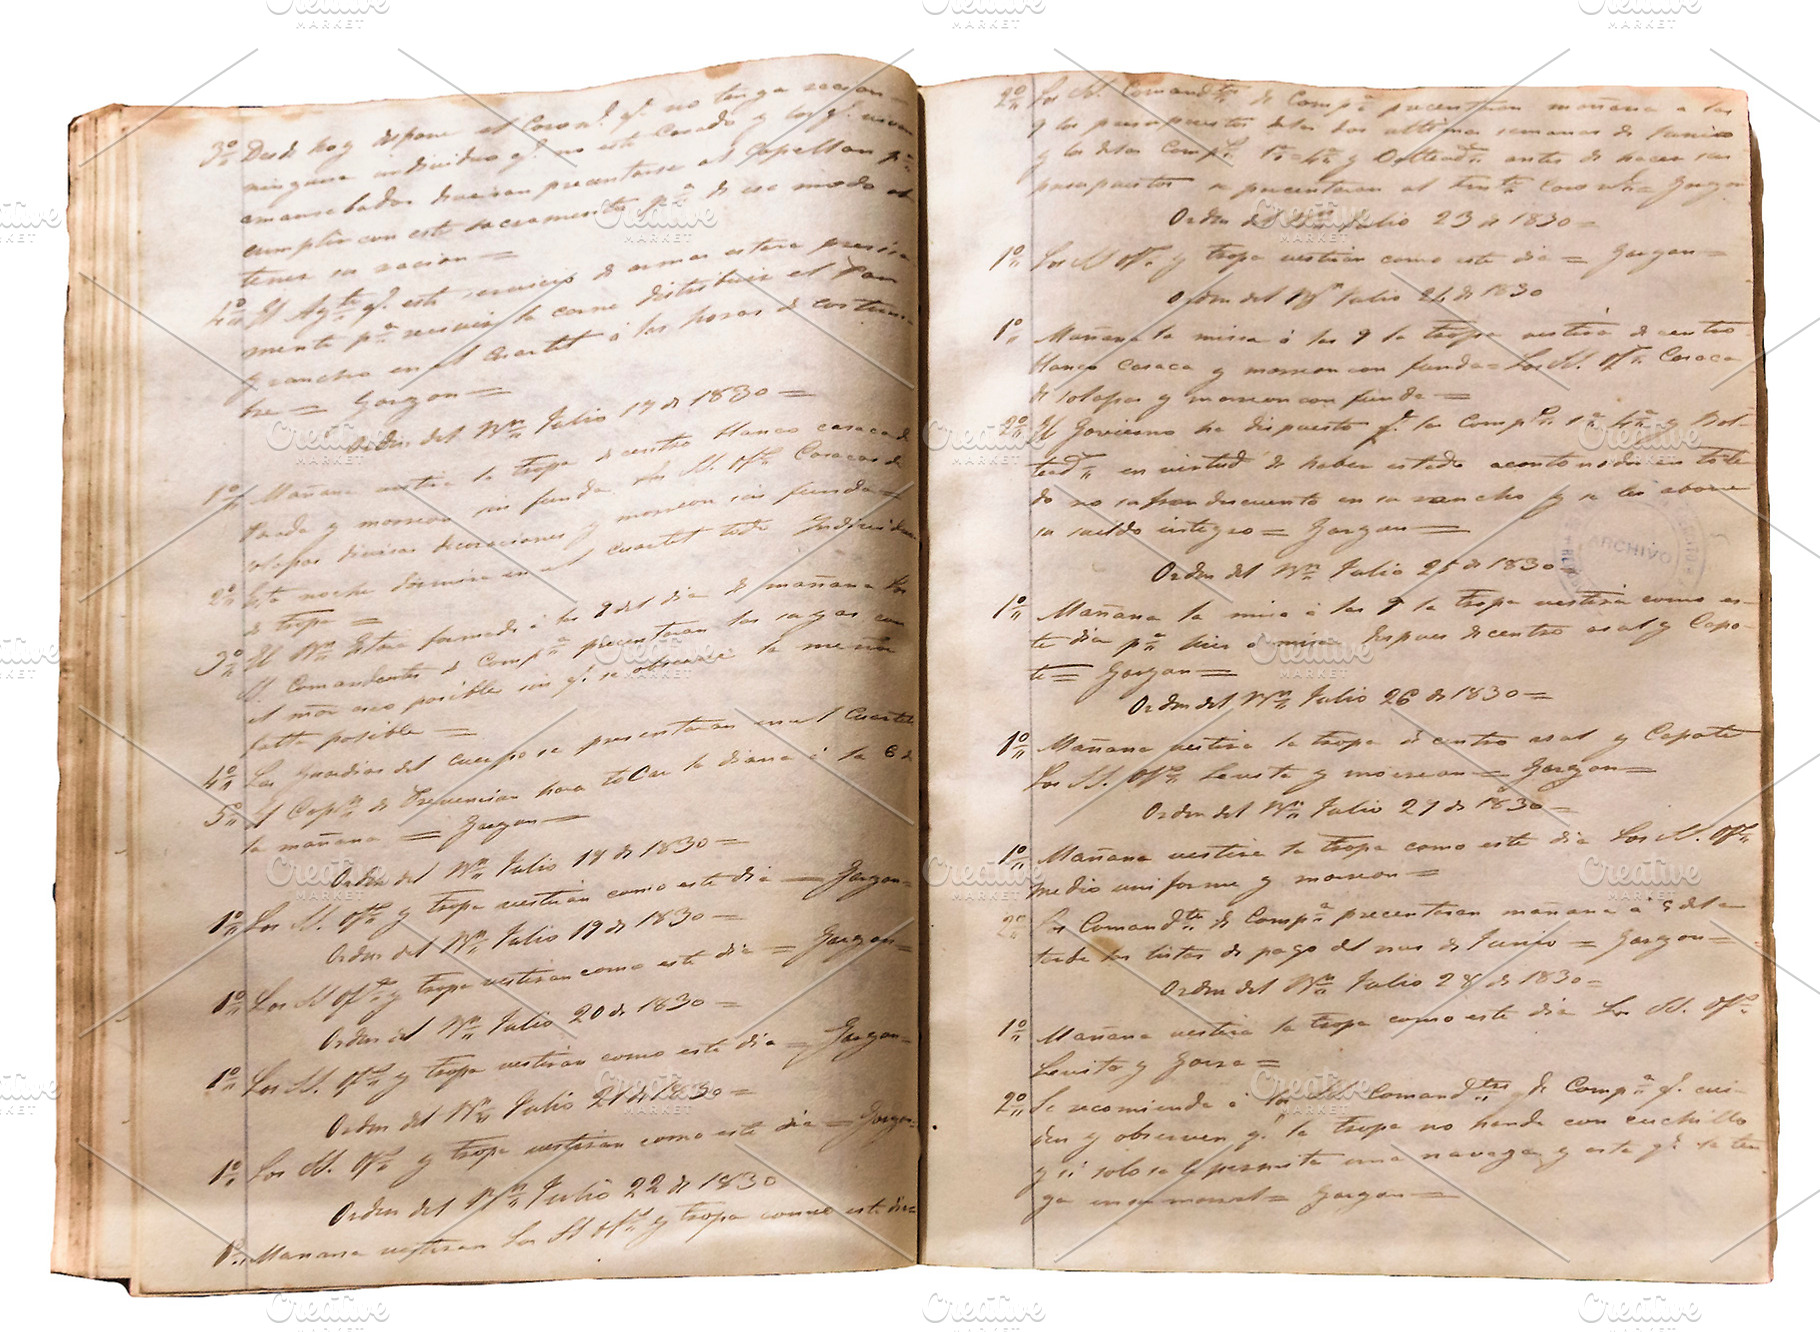 3º Desde hoy dispone el Coronl. qe. no tenga racion
ninguna individuo qe. no esté Casado y los qe. esten
amansebados deveran precentarse al Capellan pa.
cumplir con este sacramento pa. de ese modo
tener su racion =
4º El Ayte. qe. esté servicio de armas estara presisa
mente pa. resivir la carne distribuir el Pan
y rancho en el cuartel á las horas de costum
bre = Garzon =
Orden del Bn. Julio 17 de 1830 =
1º Mañana vestira la tropa de centro blanco casaca de
parada y morrion sin funda los SS. Ofs. Casacas de
solapas divisas decoraciones y morrion sin funda =
2º Esta noche dormira en el cuartel todo Individuo
de tropa =
3º El Bn. estara formado á las 9 del dia de mañana los
SS. Comandantes de Compa. precentaran las suyas con
el mor aseo posible sin qe. se observe la menor
falta posible =
4º Las Guardias del cuerpo se presentaran en el Cuartel
5º El Capn. de Prevencion hara tocar la diana á la 6 de
la mañana = Garzon =
Orden del Bn. Julio 18 de 1830 =
1º Los SS. Ofs. y tropa vestiran como este dia = Garzon =
Orden del Bn. Julio 19 de 1830 =
1º Los SS Ofs. y tropa vestiran como este dia = Garzon =
Orden del Bn. Julio 20 de 1830 =
1º Los SS. Ofs. y tropa vestiran como este dia = Garzon =
Orden del Bn. Julio 21 de 1830 =
1º Los SS. Ofs. y tropa vestiran como este dia = Garzon =
Orden del Bn. Julio 22 de 1830
1º Mañana vestiran los SS Ofs. y tropa como este dia
2º Los SS. Comandtes. de Compa. precentaran mañana a las
y los presupuestos de las dos ultimas semanas de Junio
y los de las Comps. 1a. 4a. y antes de hacer sus
presupuestos se precentaran al Tente. Coronel = Garzon
Orden del Bn. Julio 23 de 1830 =
1º Los SS Ofs. y tropa vestiran como este dia = Garzon =
Orden del Bn. Julio 24 de 1830
1º Mañana la misa á las 9 la tropa vestirá de centro
blanco casaca y morrion con funda = Los SS. Ofs. Casaca
de solapas y morrion con funda =
2º El Govierno ha dispuesto qe. las Comps. 1a. 4a. y Bol-
tead. en virtud de haber estado acantonadas en
do no sufran descuento en su rancho y se les abone
su sueldo integro = Garzon =
Orden del Bn. Julio 25 de 1830 =
ARCHIVO
1º Mañana la misa á las 9 la tropa vestirá como es-
te dia pa. misa despues de centro azul y Capo-
te = Garzon =
Orden del Bn. Julio 26 de 1830 =
1º Mañana vestira la tropa de centro azul y Capote
Los SS. Ofs. Levita y morrion = Garzon =
Orden del Bn. Julio 27 de 1830 =
1º Mañana vestira la tropa como este dia Los SS. Ofs.
medio uniforme y morrion =
2º Los Comandtes. de Compa. precentaran mañana a de la
tarde las listas de pago del mes de Junio = Garzon =
Orden del Bn. Julio 28 de 1830 =
1º Mañana vestira la tropa como este dia Los SS. Ofs.
Levita y Gorra =
2º Se recomienda á los SS. Comandtes. de Compa. qe. cui-
den y observen qe. la tropa no hande con cuchillo
y si solo se le permita una navaja y esta qe. la ten
ga en su morral = Garzon =
Creative
MARKET